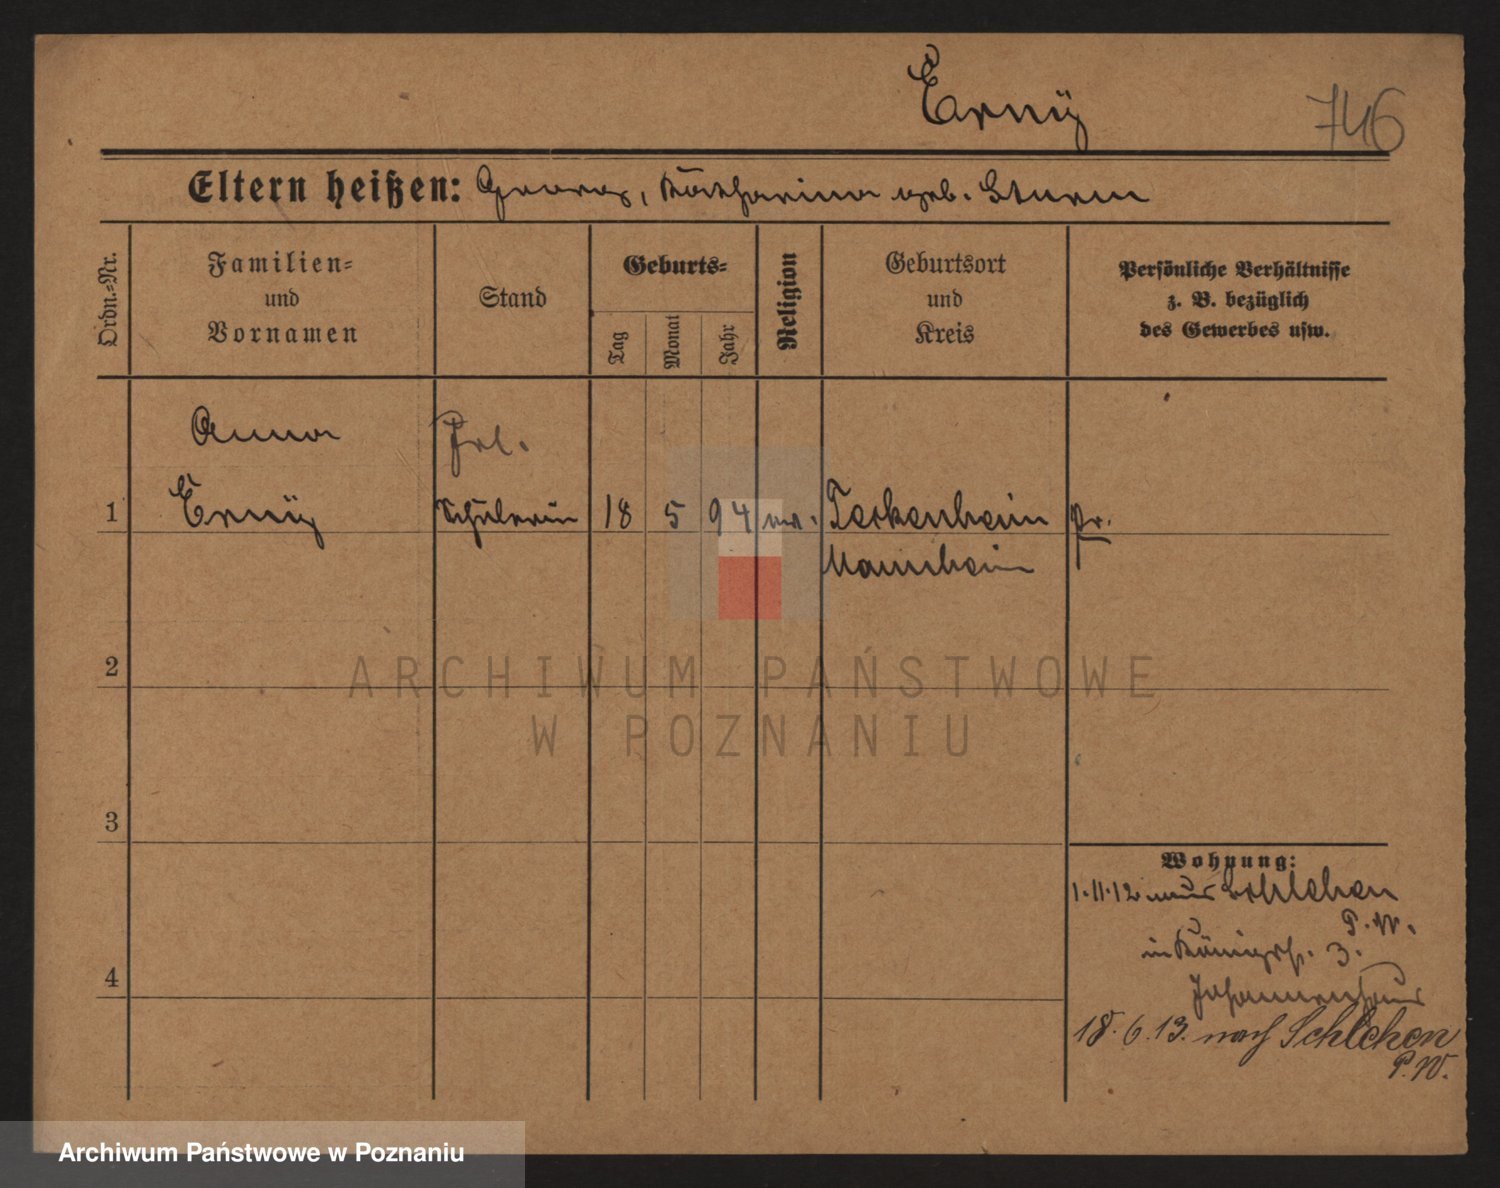 Ernÿ
746
Eltern heißen: Georg, Katharina geb. Sturm
Ordn.-Nr.
Familien-
und
Vornamen
Stand
Geburts-
Tag
Monat
Jahr
Religion
Geburtsort
und
Kreis
Persönliche Verhältnisse
z. B. bezüglich
des Gewerbes usw.
Anna
Frl.
1 Ernÿ Schülerin 18 5 94 ev. Seckenheim Pr.
Mannheim
2
3
4
Wohnung:
1.11.12 aus Schlehen
P.W.
in Königspl. 3.
Johannenhaus
18.6.13. nach Schlehen
P.W.
ARCHIWUM PAŃSTWOWE
W POZNANIU
Archiwum Państwowe w Poznaniu